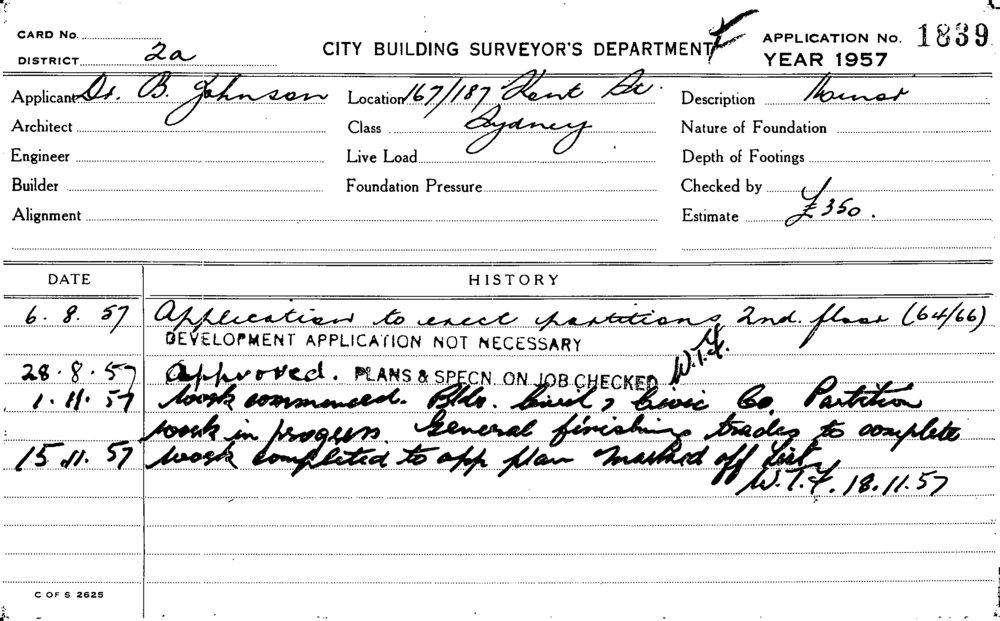 CARD No.
DISTRICT 2a
CITY BUILDING SURVEYOR'S DEPARTMENT
APPLICATION No. 1839
YEAR 1957
Applicant Dr. B. Johnson
Location 167/187 Kent St.
Description Minor
Architect
Class Sydney
Nature of Foundation
Engineer
Live Load
Depth of Footings
Builder
Foundation Pressure
Checked by
Alignment
Estimate £350.
DATE
HISTORY
6. 8. 57 Application to erect partitions 2nd. floor (64/66)
DEVELOPMENT APPLICATION NOT NECESSARY
28. 8. 57 Approved. PLANS & SPECN. ON JOB CHECKED W.T.F.
1. 11. 57 Work commenced. Bldr. Civil & Civic Co. Partition
work in progress. General finishing trades to complete
15. 11. 57 Work completed to app plan marked off list
W.T.F. 18.11.57
C OF S 2625